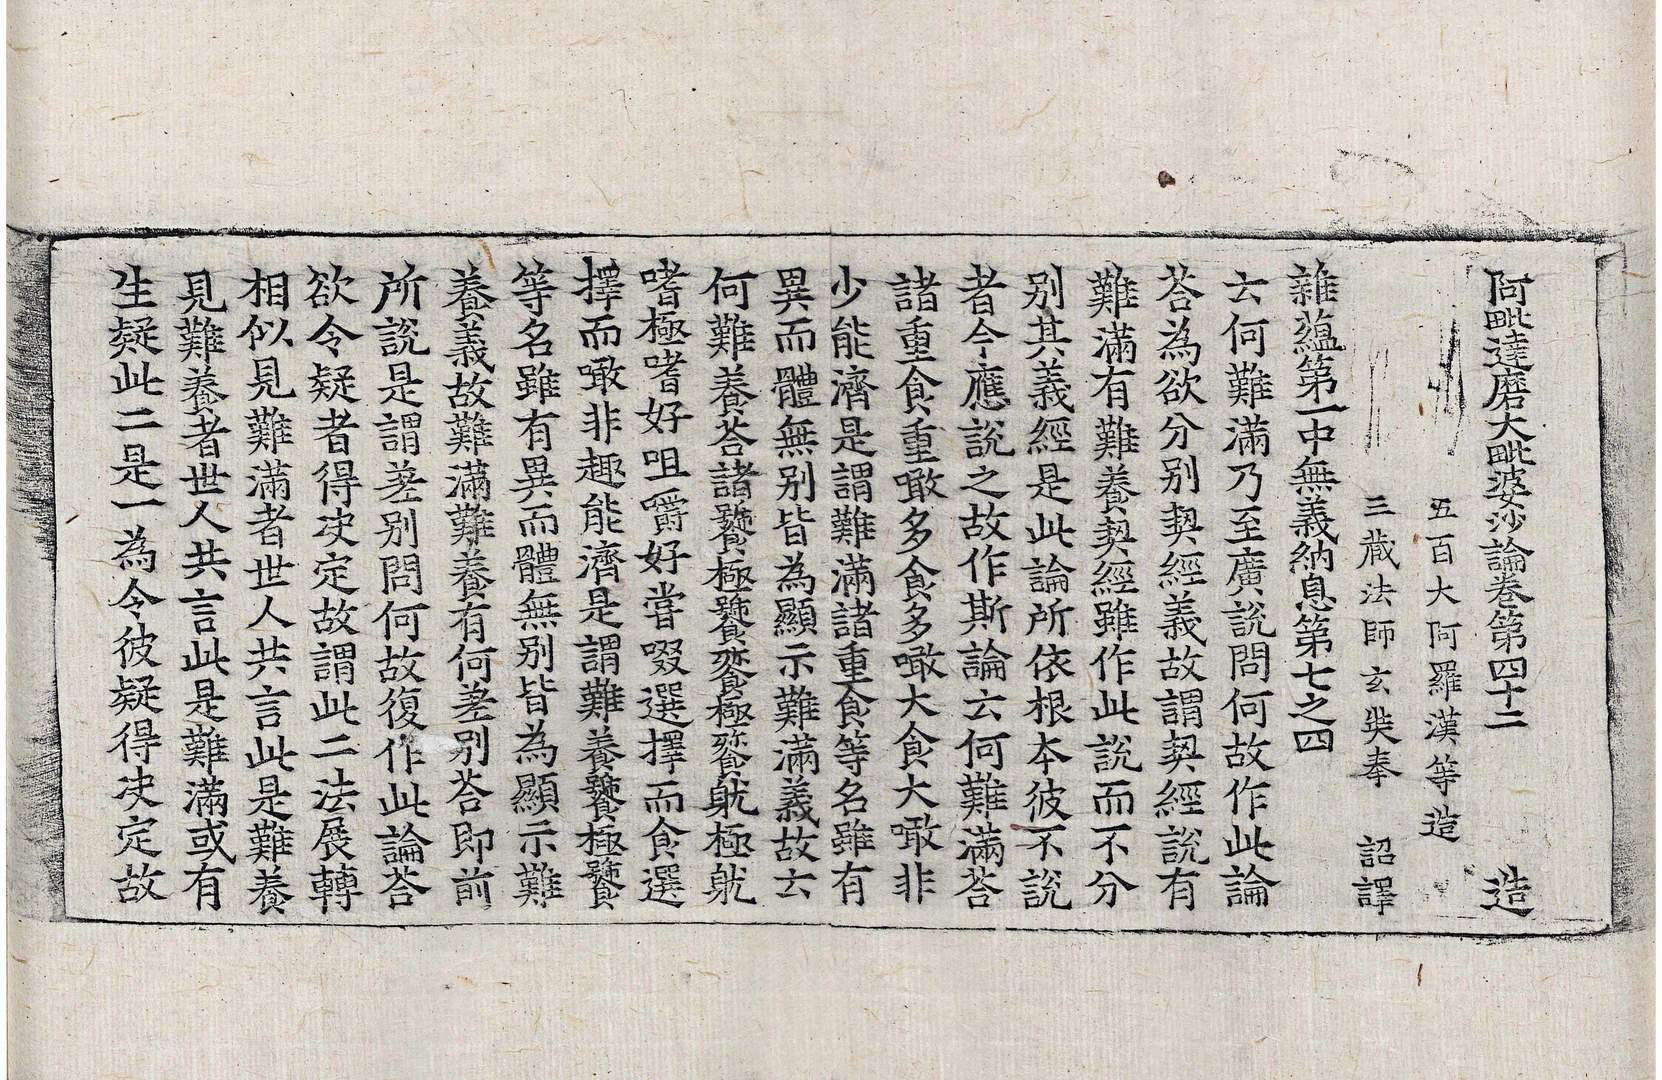 阿毗達磨大毗婆沙論卷第四十二　造
五百大阿羅漢等造
三藏法師玄奘奉　詔譯
雜蘊第一中無義納息第七之四
云何難滿乃至廣說問何故作此論
荅為欲分別契經義故謂契經說有
難滿有難養契經雖作此說而不分
別其義經是此論所依根本彼不說
者今應說之故作斯論云何難滿荅
諸重食重噉多食多噉大食大噉非
少能濟是謂難滿諸重食等名雖有
異而體無別皆為顯示難滿義故云
何難養荅諸饕極饕餮極餮躭極躭
嗜極嗜好咀嚼好嘗啜選擇而食選
擇而噉非趣能濟是謂難養饕極饕
等名雖有異而體無別皆為顯示難
養義故難滿難養有何差別荅即前
所說是謂差別問何故復作此論荅
欲令疑者得决定故謂此二法展轉
相似見難滿者世人共言此是難養
見難養者世人共言此是難滿或有
生疑此二是一為令彼疑得决定故